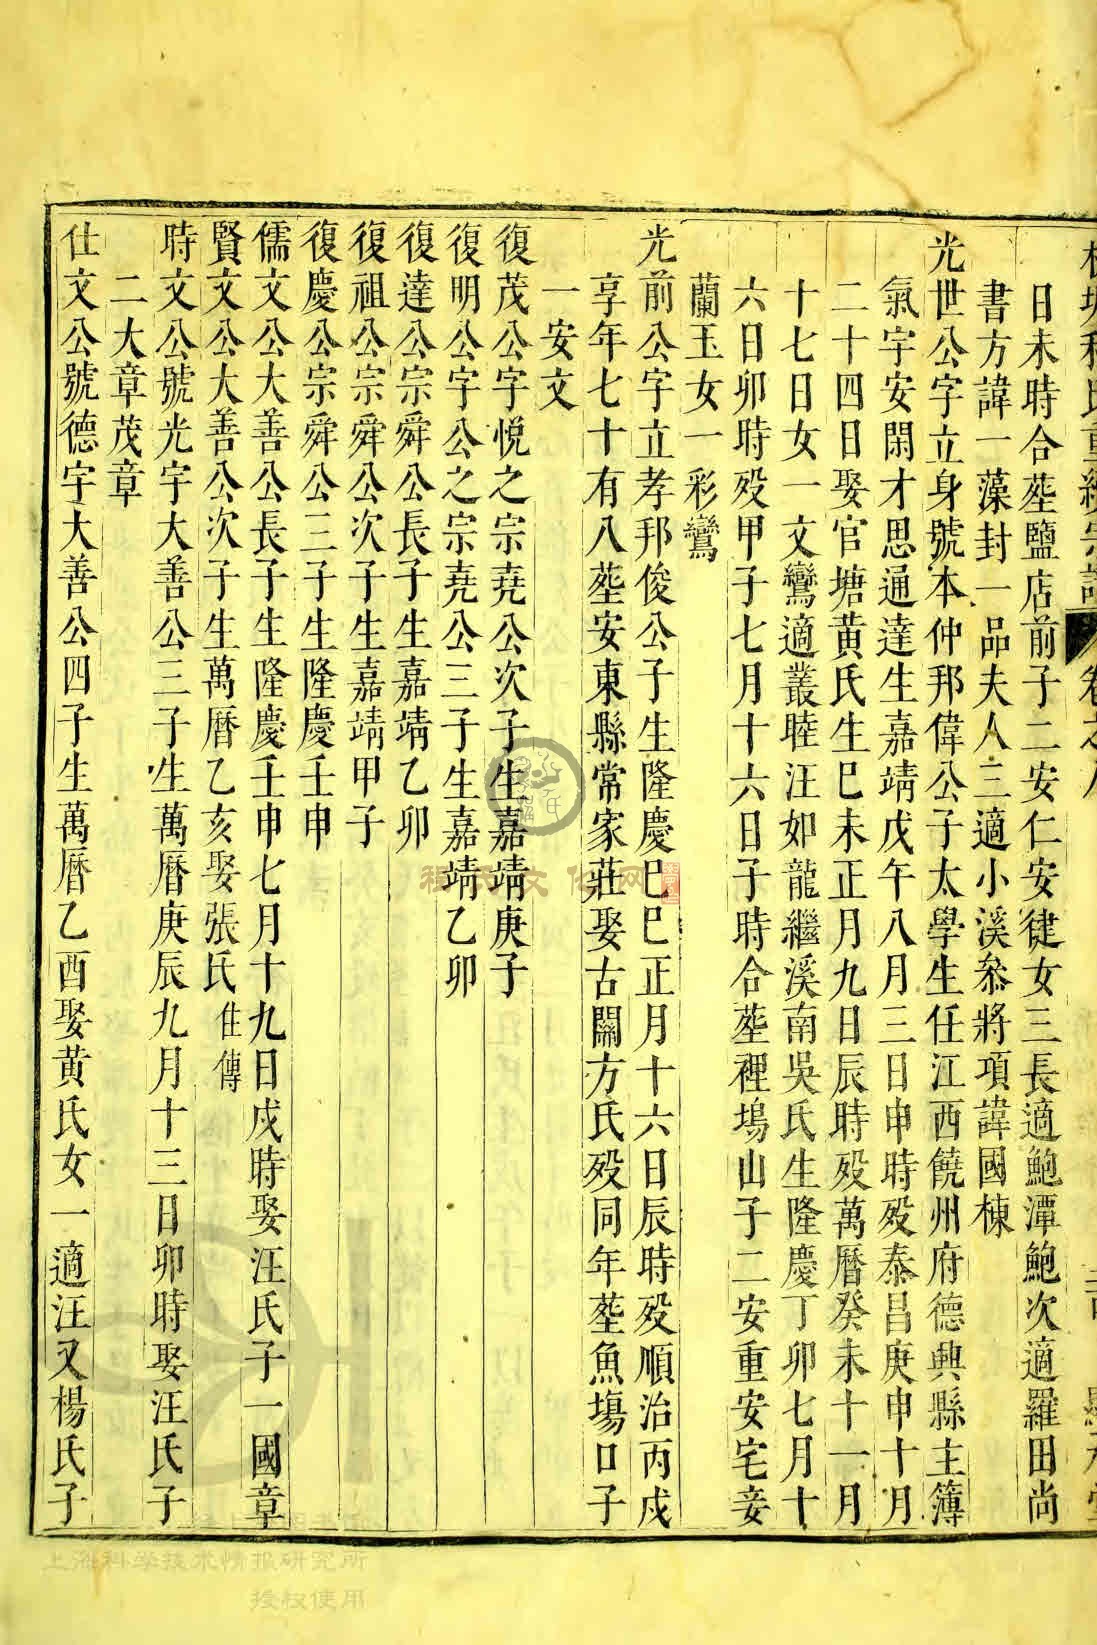 日未時合塟鹽店前子二安仁安徤女三長適鮑潭鮑次適羅田尚
書方諱一藻封一品夫人三適小溪叅將項諱國棟
光世公字立身號本仲邦偉公子太學生任江西饒州府德興縣主簿
氣宇安閑才思通達生嘉靖戊午八月三日申時殁泰昌庚申十月
二十四日娶官塘黃氏生巳未正月九日辰時殁萬曆癸未十一月
十七日女一文鸞適叢睦汪如龍繼溪南吳氏生隆慶丁卯七月十
六日卯時殁甲子七月十六日子時合塟裡塢山子二安重安宅妾
蘭玉女一彩鸞
光前公字立孝邦俊公子生隆慶巳巳正月十六日辰時殁順治丙戌
享年七十有八塟安東縣常家莊娶古關方氏殁同年塟魚塲口子
一安文
復茂公字悅之宗堯公次子生嘉靖庚子
復明公字公之宗堯公三子生嘉靖乙卯
復達公宗舜公長子生嘉靖乙卯
復祖公宗舜公次子生嘉靖甲子
復慶公宗舜公三子生隆慶壬申
儒文公大善公長子生隆慶壬申七月十九日戌時娶汪氏子一國章
賢文公大善公次子生萬曆乙亥娶張氏住傳
時文公號光宇大善公三子生萬曆庚辰九月十三日卯時娶汪氏子
二大章茂章
仕文公號德宇大善公四子生萬曆乙酉娶黃氏女一適汪又楊氏子
程氏文化网
上海科学技术情报研究所
授权使用